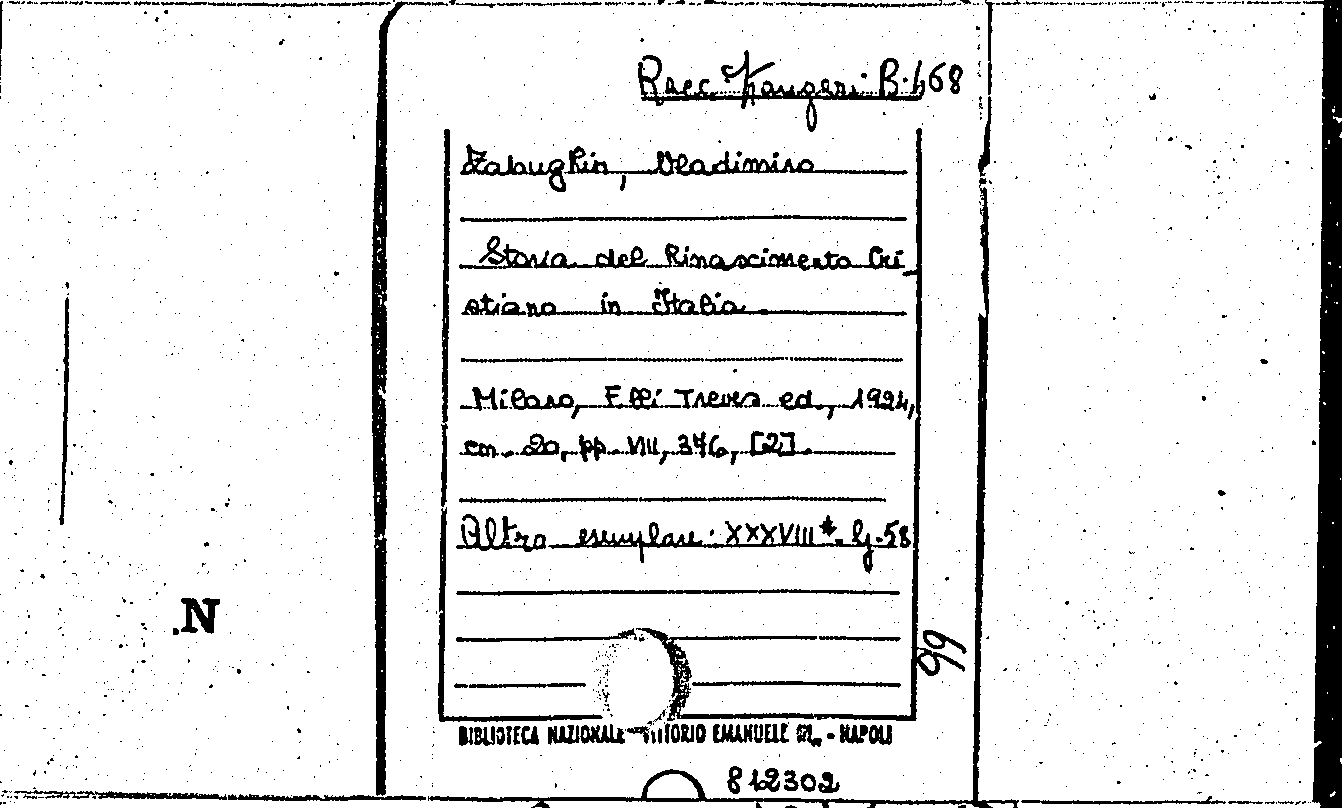 Racc. Frangeri B. 468
Zabughin, Vladimiro
Storia del Rinascimento Cri-
stiano in Italia.
Milano, F.lli Treves ed., 1924,
cm. 20, pp. VIII, 376, [2].
Altro esemplare: XXXVIII*. G. 58
99
.N
BIBLIOTECA NAZIONALE VITTORIO EMANUELE III - NAPOLI
812302